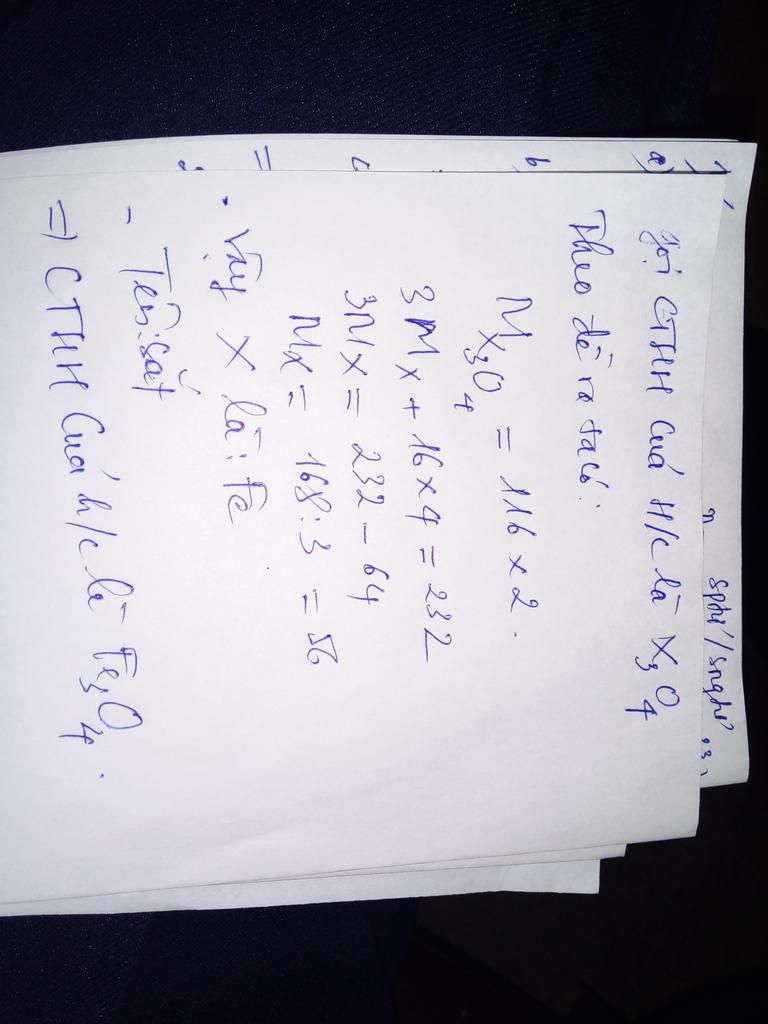 Gọi CTHH Cuả H/c là X₃O₄
Theo đề ra ta có:
M X₃O₄ = 116 x 2.
3 Mx + 16 x 4 = 232
3Mx = 232 - 64
Mx = 168 : 3 = 56
. Vậy X là : Fe
- Tên: sắt
=) CTHH Cuả h/c là Fe₃O₄.
a)
b
c
=